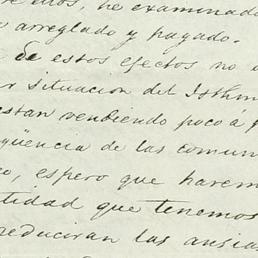 de ellos, he examinado
arreglado y pagado.
de estos efectos no e
situacion del Isthm
estan vendiendo poco a p
qüencia de las comun
espero que harem
tidad que tenemos
reduciran las ansia